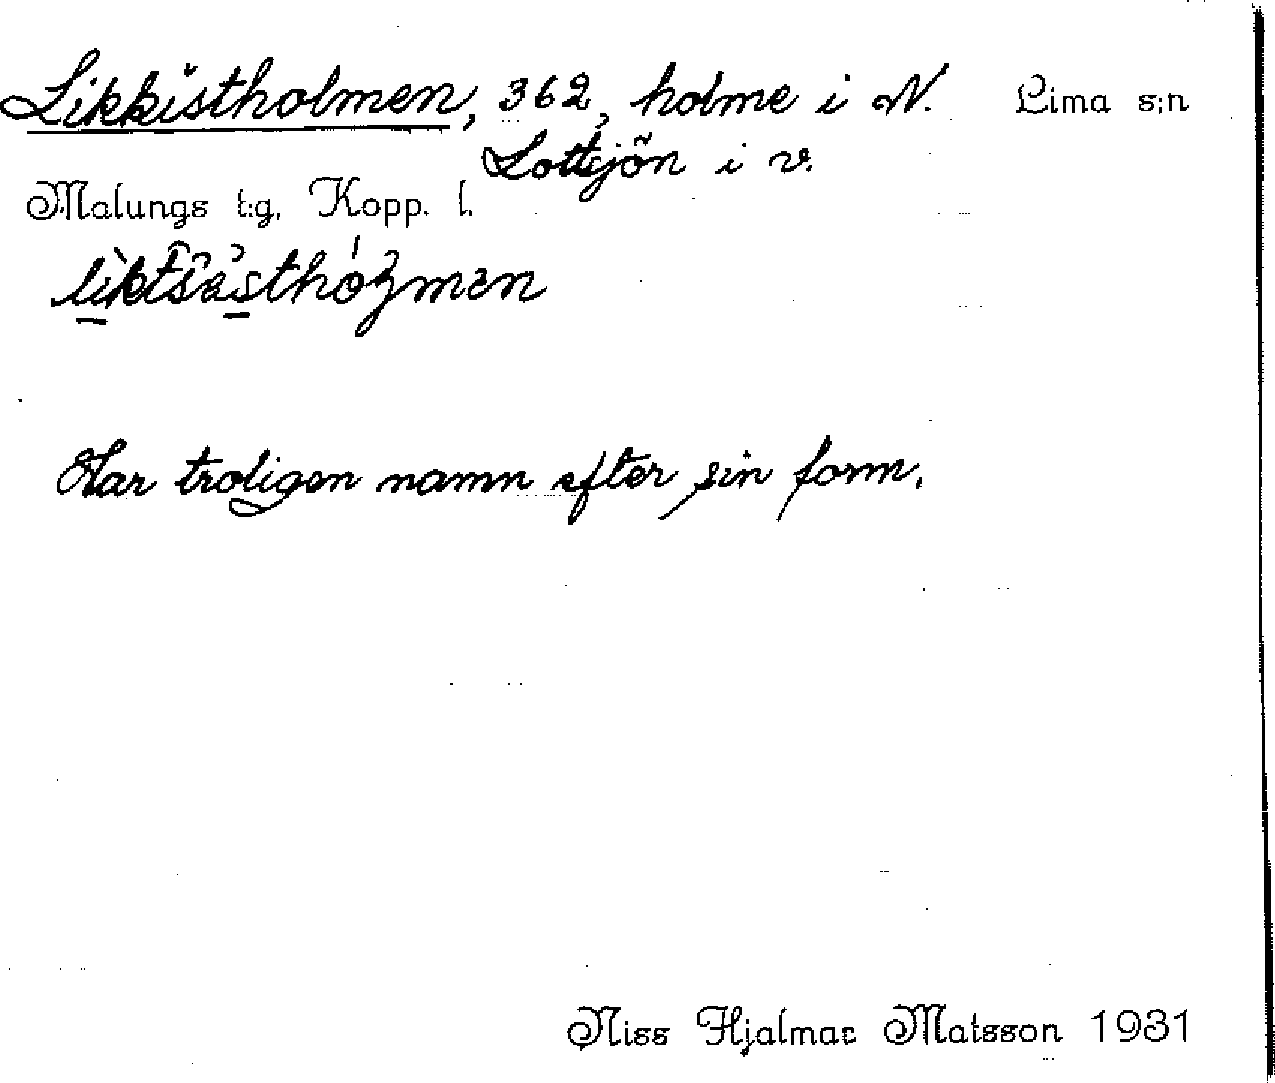 Likkistholmen, 362, holme i N. Lima s:n
Lottsjön i v.
Malungs t:g. Kopp. l.
Har troligen namn efter sin form.
Niss Hjalmar Matsson 1931